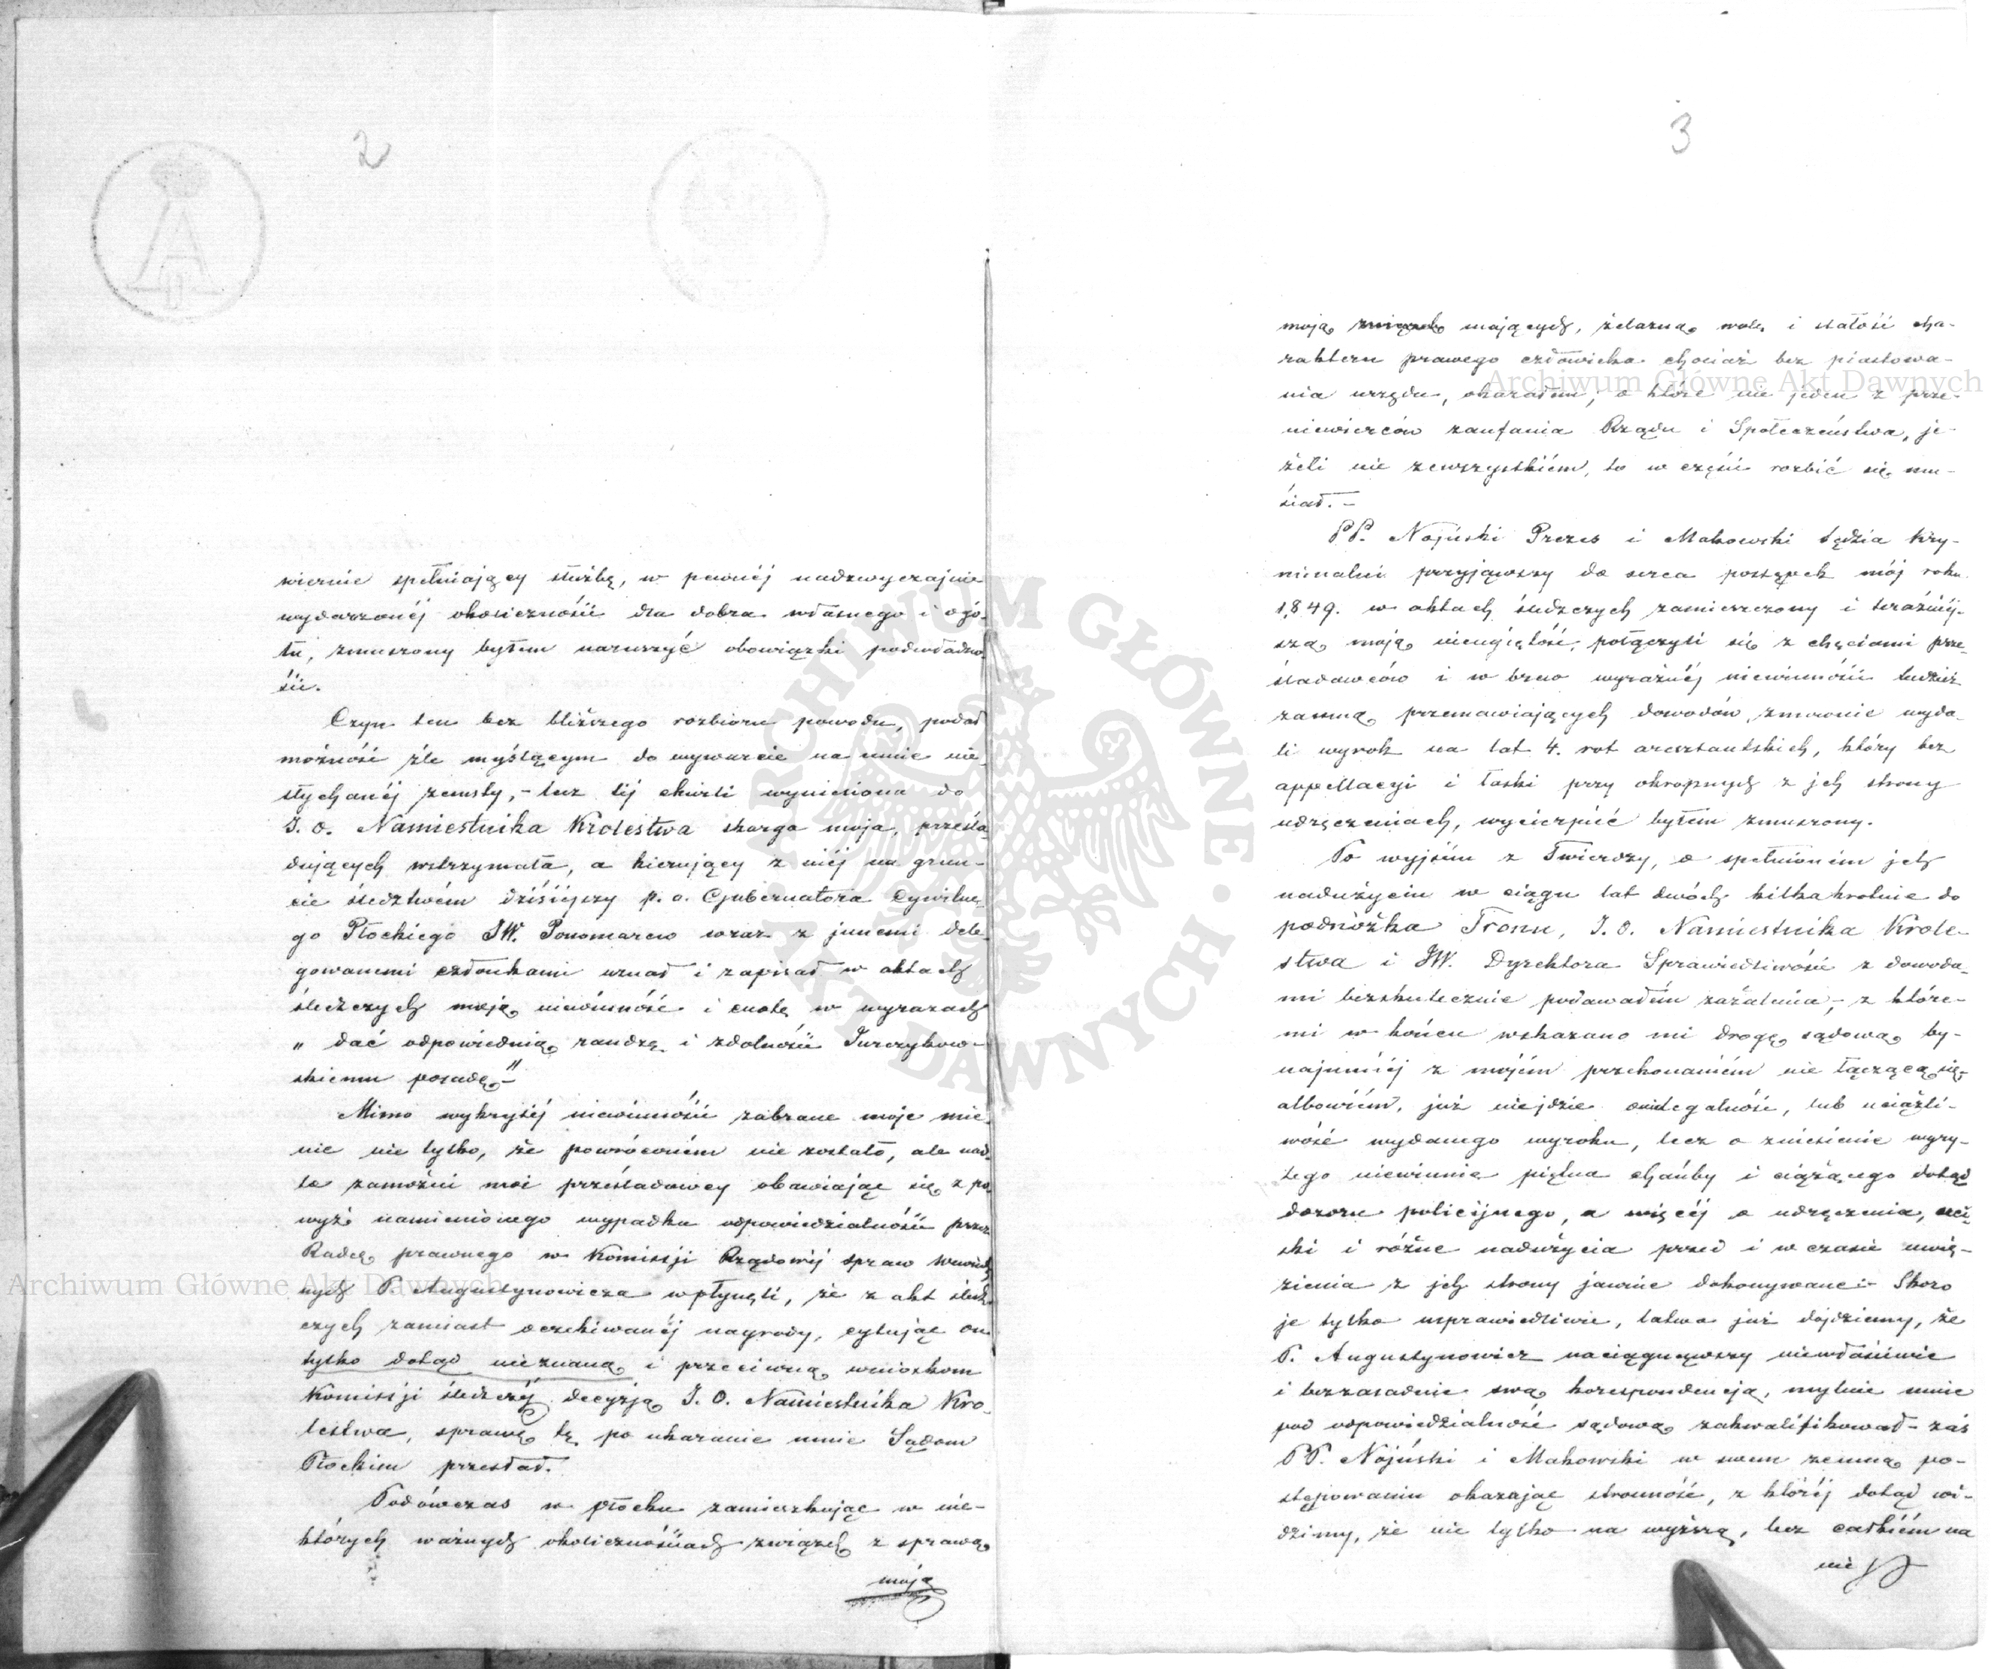 2
wiernie spełniający służbę, w pewnéj nadzwyczajnie
wydarzonéj okoliczności dla dobra własnego i ogó-
łu, zmuszony byłem naruszyć obowiązki podwładno-
ści.
Czyn ten bez bliższego rozbioru powodu, podał
możność źle myślącym do wywarcia na mnie nie-
słychanéj zemsty, - lecz téj chwili wyniesiona do
J. O. Namiestnika Krolestwa skarga moja, prześla-
dujących wstrzymała, a kierujący z niéj na grun-
cie śledztwem dziśiéjszy p. o. Gubernatora Cywilne-
go Płockiego JW. Ponomarew wraz z innemi dele-
gowanemi członkami uznał i zapisał w aktach
śledczych moję niewinność i cnotę w wyrazach
„ dać odpowiednią randze i zdolności Jurczykow-
skiemu posadę -"
Mimo wykrytéj niewinności zabrane moje mie-
nie nie tylko, że powróconem nie zostało, ale nad-
to zamożni moi prześladowcy obawiając się z po-
wyż namienionego wypadku odpowiedzialności przez
Radcę prawnego w Komissji Rządowéj spraw wewnętrz
nych P. Augustynowicza wpłynęli, że z akt śled-
czych zamiast oczekiwanéj nagrody, cytując on
tylko dotąd nieznaną i przeciwną wnioskom
Komissji śledczéj decyzją J. O. Namiestnika Kro-
lestwa, sprawę tę po ukaranie mnie Sądom
Płockim przesłał.
Podówczas w Płocku zamieszkując w nie-
których ważnych okolicznościach związek z sprawą
moją
3
moją związek mających, żelazną wolę i stałość cha-
rakteru prawego człowieka chociaż bez piastowa-
nia urzędu, okazałem, o które nie jeden z prze-
niewierców zaufania Rządu i Społeczeństwa, je-
żeli nie zewszystkiém, to w części rozbić się mu-
siał. -
PP. Nojński Prezes i Makowski Sędzia Kry-
minalni przyjąwszy do serca postępek mój roku
1849. w aktach śledczych zamieszczony i teraźniéj-
szą moją nieugiętość, połączyli się z chęciami prze-
śladowców i w brew wyraźnéj niewinności tudzież
zamną przemawiających dowodów, zmownie wyda-
li wyrok na lat 4. rot aresztantskich, który bez
appellacyi i łaski przy okropnych z ich strony
udręczeniach, wycierpieć byłem zmuszony.
Po wyjściu z Twierdzy, o spełnionem ich
nadużyciu w ciągu lat dwóch kilkakrotnie do
podnóżka Tronu, J. O. Namiestnika Krole-
stwa i JW. Dyrektora Sprawiedliwości z dowoda-
mi bezskutecznie podawałem zażalenia, - z które-
mi w końcu wskazano mi drogę sądową by-
najmniéj z mojém przekonaniém nie łączącą się,
albowiém, już niejdzie o nielegalność, lub uciążli-
wość wydanego wyroku, lecz o zniesienie wyry-
tego niewinnie piętna chańby i ciążącego dotąd
dozoru policijnego, a więcéj o udręczenia, uci-
ski i różne nadużycia przed i w czasie uwię-
zienia z ich strony jawnie dokonywane: - Skoro
je tylko usprawiedliwię, łatwo już dojdziemy, że
P. Augustynowicz naciągnąwszy niewłaściwie
i bezzasadnie swą korespondencją, mylnie mnie
pod odpowiedzialność sądową zakwalifikował - zaś
PP. Nojński i Makowski w swem zemną po-
stępowaniu okazając stronność, z któréj dotąd wi-
dzimy, że nie tylko na wyższą, lecz całkiém na
nie
Archiwum Główne Akt Dawnych
Archiwum Główne Akt Dawnych
ARCHIWUM GŁÓWNE AKT DAWNYCH